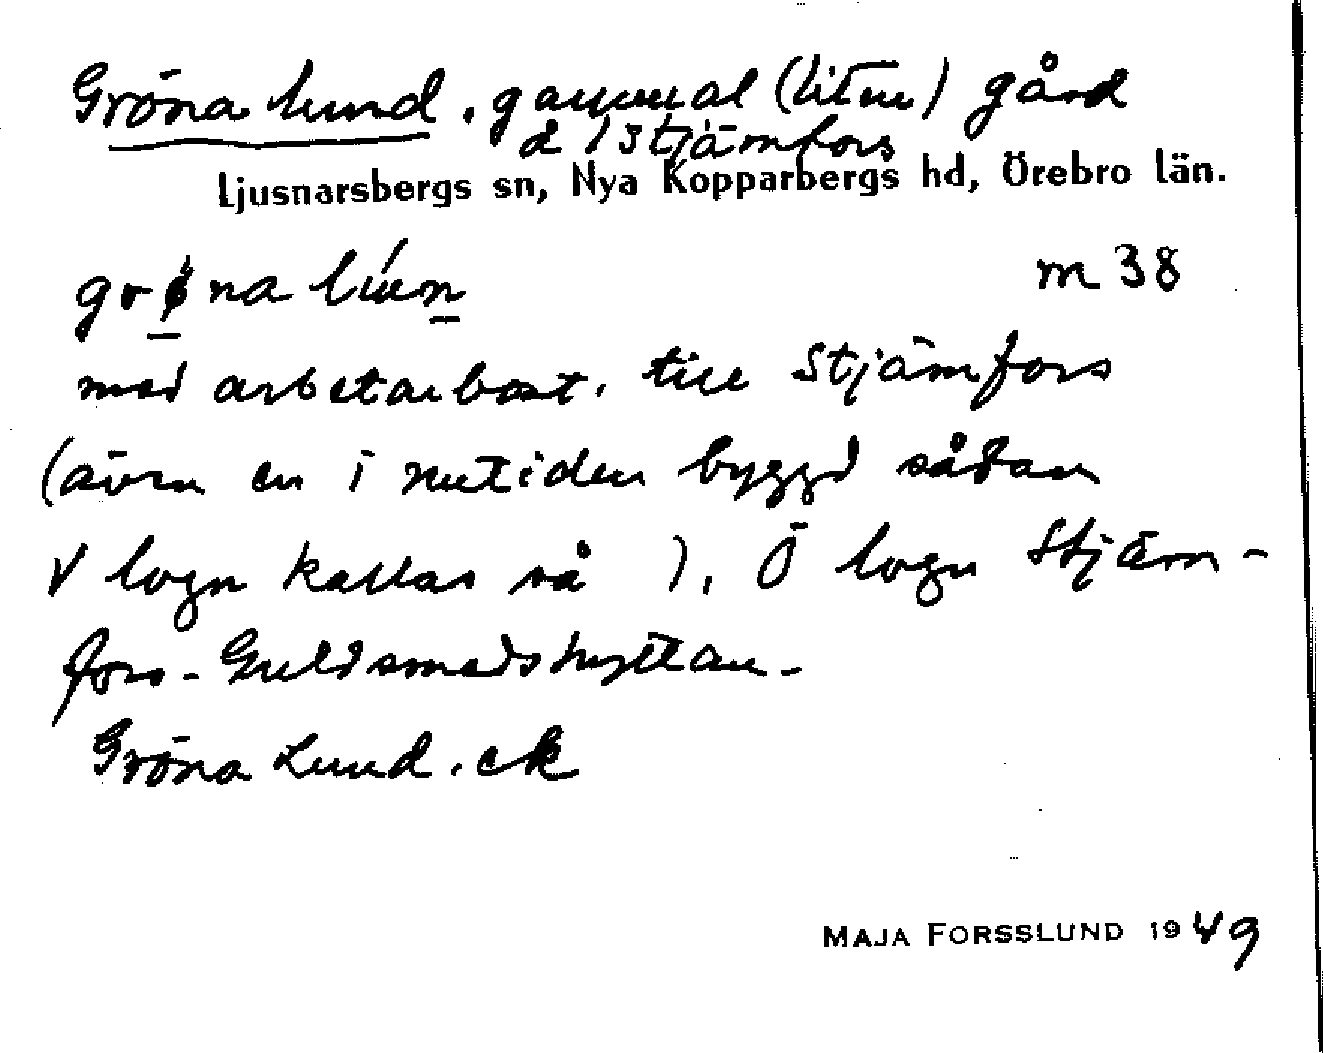 Gröna lund, gammal (liten) gård
d 1 Stjärnfors
Ljusnarsbergs sn, Nya Kopparbergs hd, Örebro län.
grøna lún m 38
med arbetarbost. till Stjärnfors
(även en i nutiden byggd sådan
V logn kallas så ). Ö logn Stjärn-
fors - Guldsmedshyttan -
Gröna Lund. ek
MAJA FORSSLUND 1949